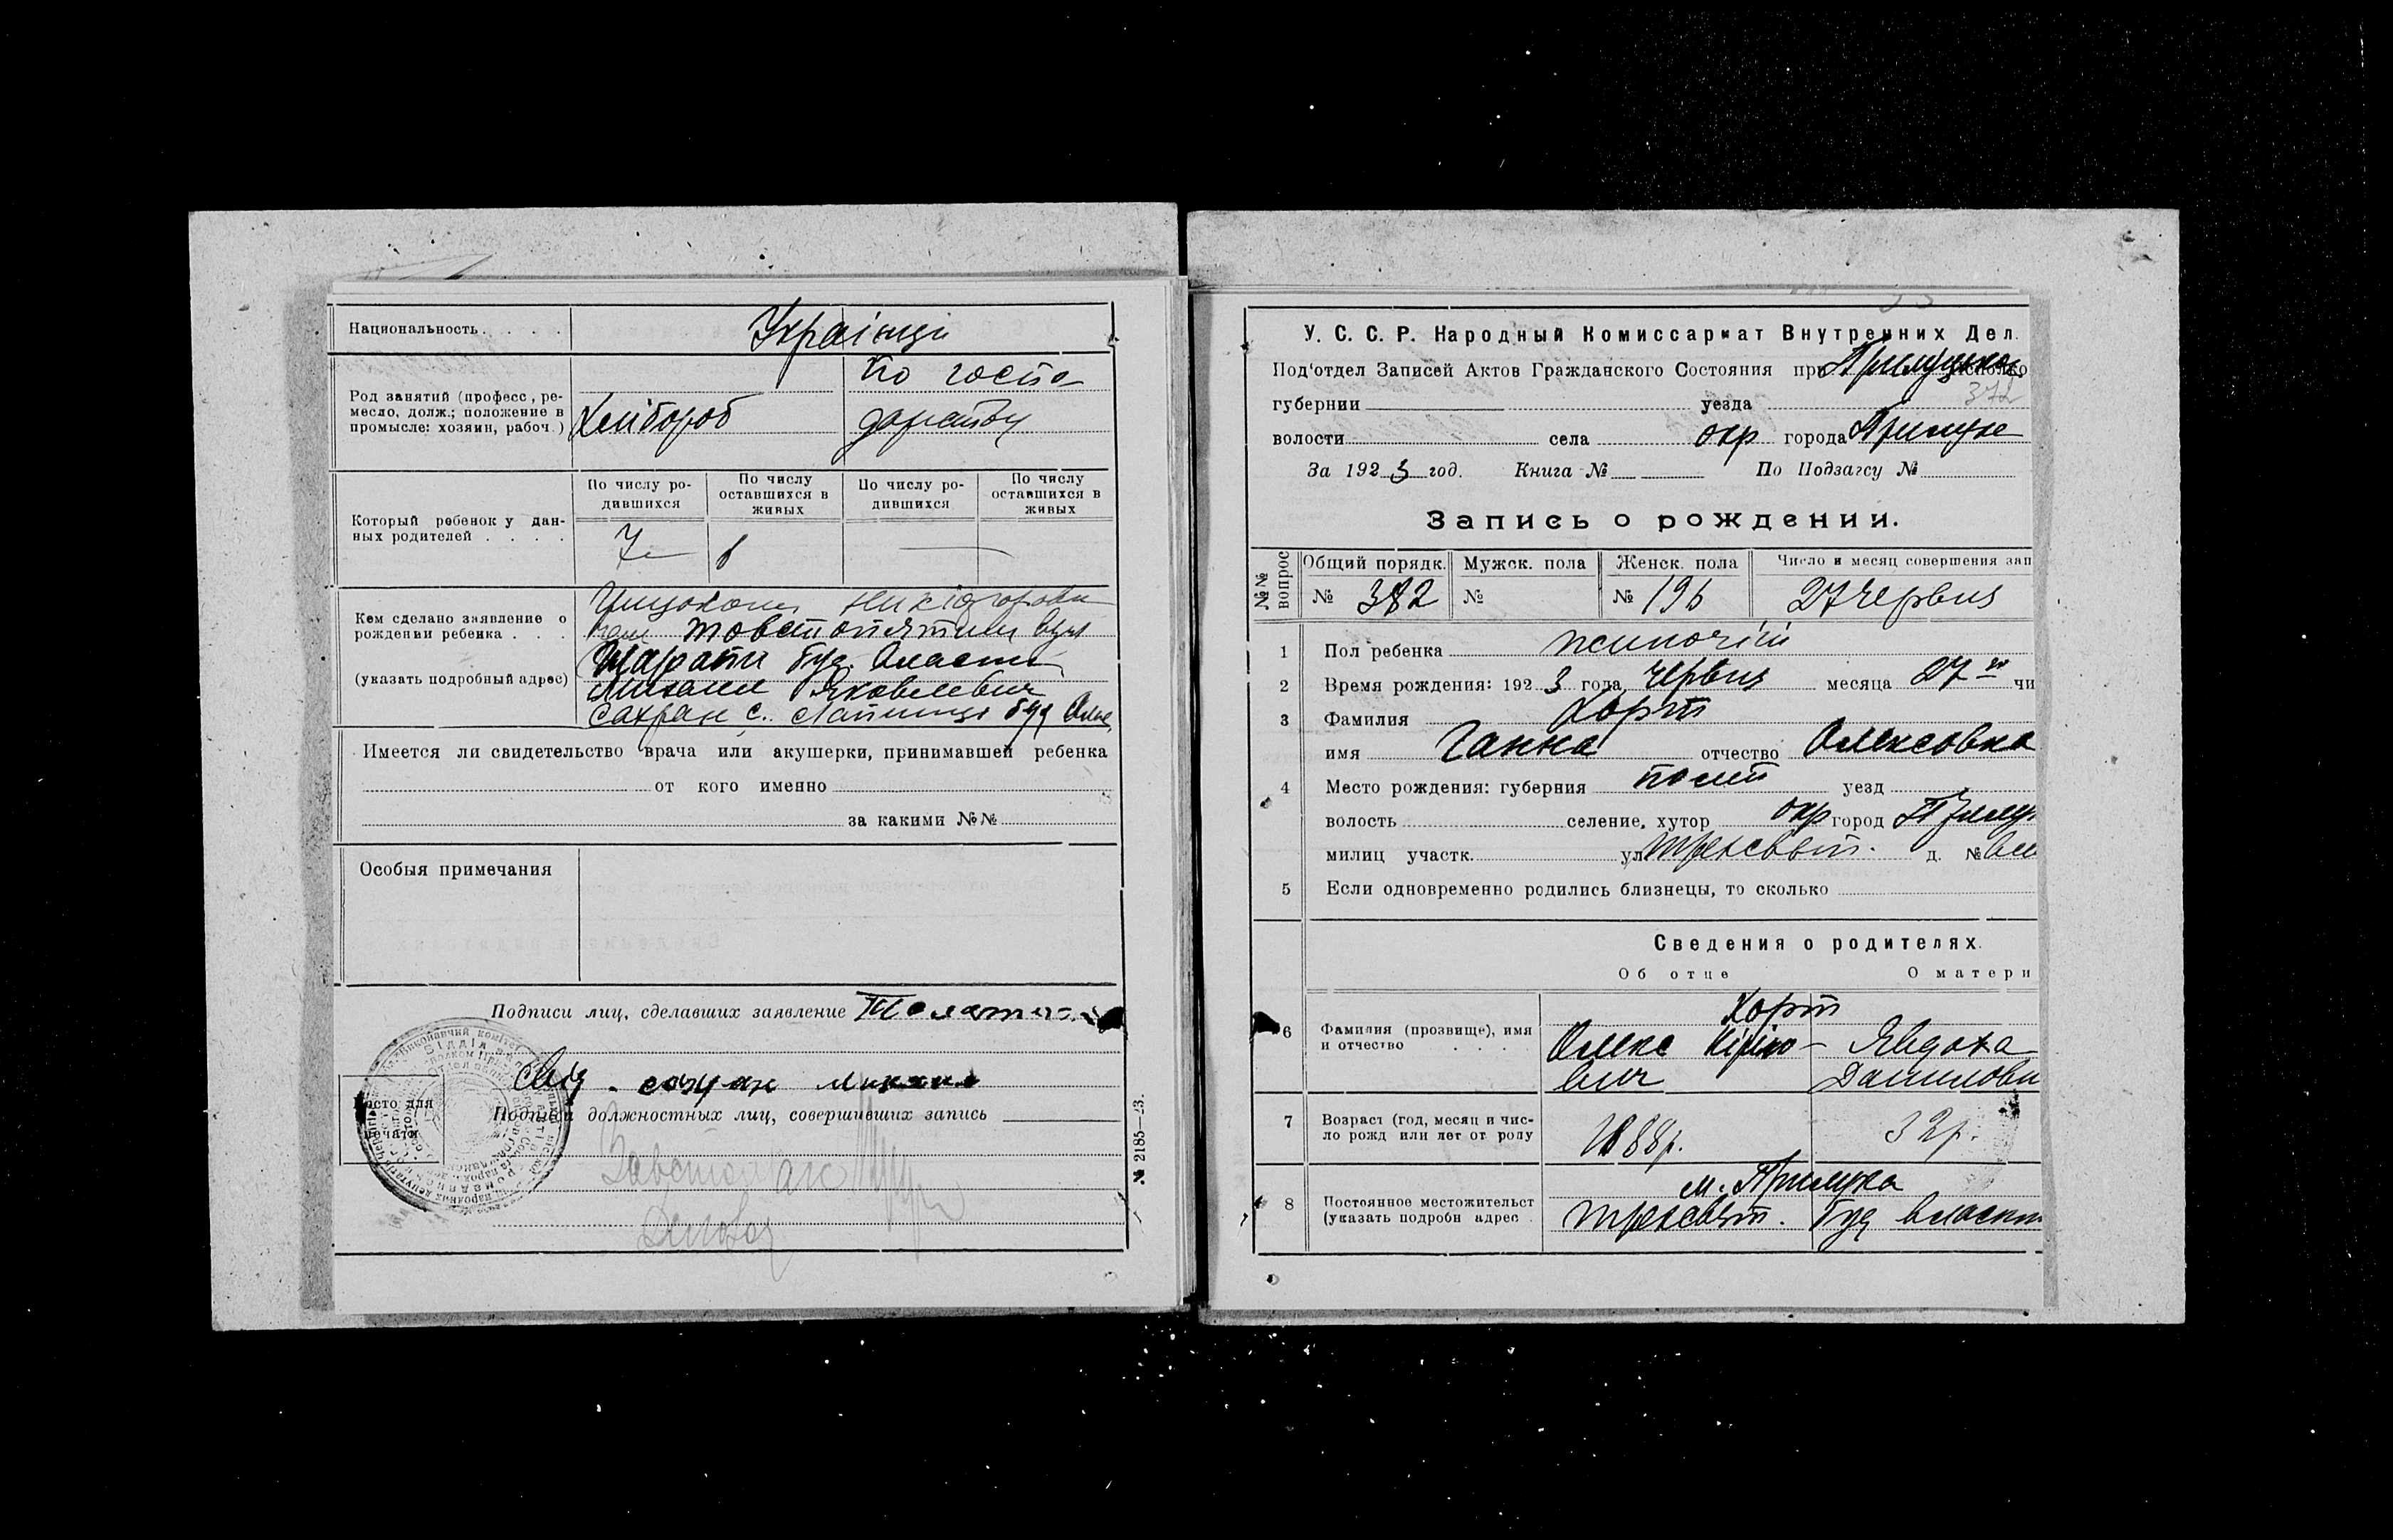 Национальность . . . . Українці
Род занятий (професс, ре-
месло, долж.; положение в
промысле: хозяин, рабоч.)
Хлібороб
по госпо
дарству
Который ребенок у дан-
ных родителей . . . .
По числу ро-
дившихся
По числу
оставшихся в
живых
По числу ро-
дившихся
По числу
оставшихся в
живых
7 6 —
Кем сделано заявление о
рождении ребенка . . .
(указать подробный адрес)
Товстопятим вул
буд. Власний
Михаил Яковлевич
с. буд Влас
Имеется ли свидетельство врача или акушерки, принимавшей ребенка
от кого именно
за какими №№
Особыя примечания
Подписи лиц, сделавших заявление
Михаил
Подписи должностных лиц, совершивших запись
Место для
печати
№ 2185—23.
У. С. С. Р. Народный Комиссариат Внутренних Дел.
Под'отдел Записей Актов Гражданского Состояния при Прилуцком
372
губернии уезда
волости села окр города Прилуке
За 1923 год. Книга № По Подзагсу №
Запись о рождении.
№№
вопрос
Общий порядк. Мужск. пола Женск. пола Число и месяц совершения зап
№ 382 № № 196 27 червня
1 Пол ребенка жиночий
2 Время рождения: 1923 года червня месяца 27 чи
3 Фамилия Хорт
имя Ганна отчество Олексовна
4 Место рождения: губерния Полт уезд
волость селение, хутор окр город Прилу
милиц участк. ул Трехсвят. д. № вл
5 Если одновременно родились близнецы, то сколько
Сведения о родителях.
Об отце О матери
6 Фамилия (прозвище), имя
и отчество . . .
Хорт
Олекс Кирило- Явдоха
вич Даниловн
7 Возраст (год, месяц и чис-
ло рожд или лет от роду
1888р. 32р.
8 Постоянное местожительст
(указать подробн адрес .
м. Прилука
Трехсвят. буд власни